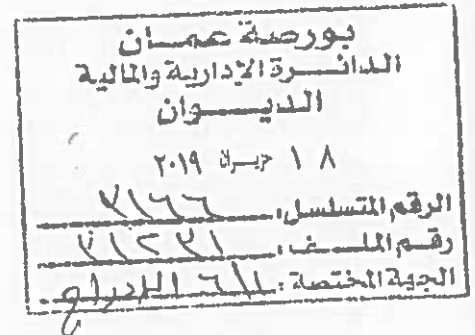 بورصة عمان
الدائرة الإدارية والمالية
الديوان
١٨ حزيران ٢٠١٩
الرقم المتسلسل:
رقم الملف:
الجهة المختصة: الإدراج